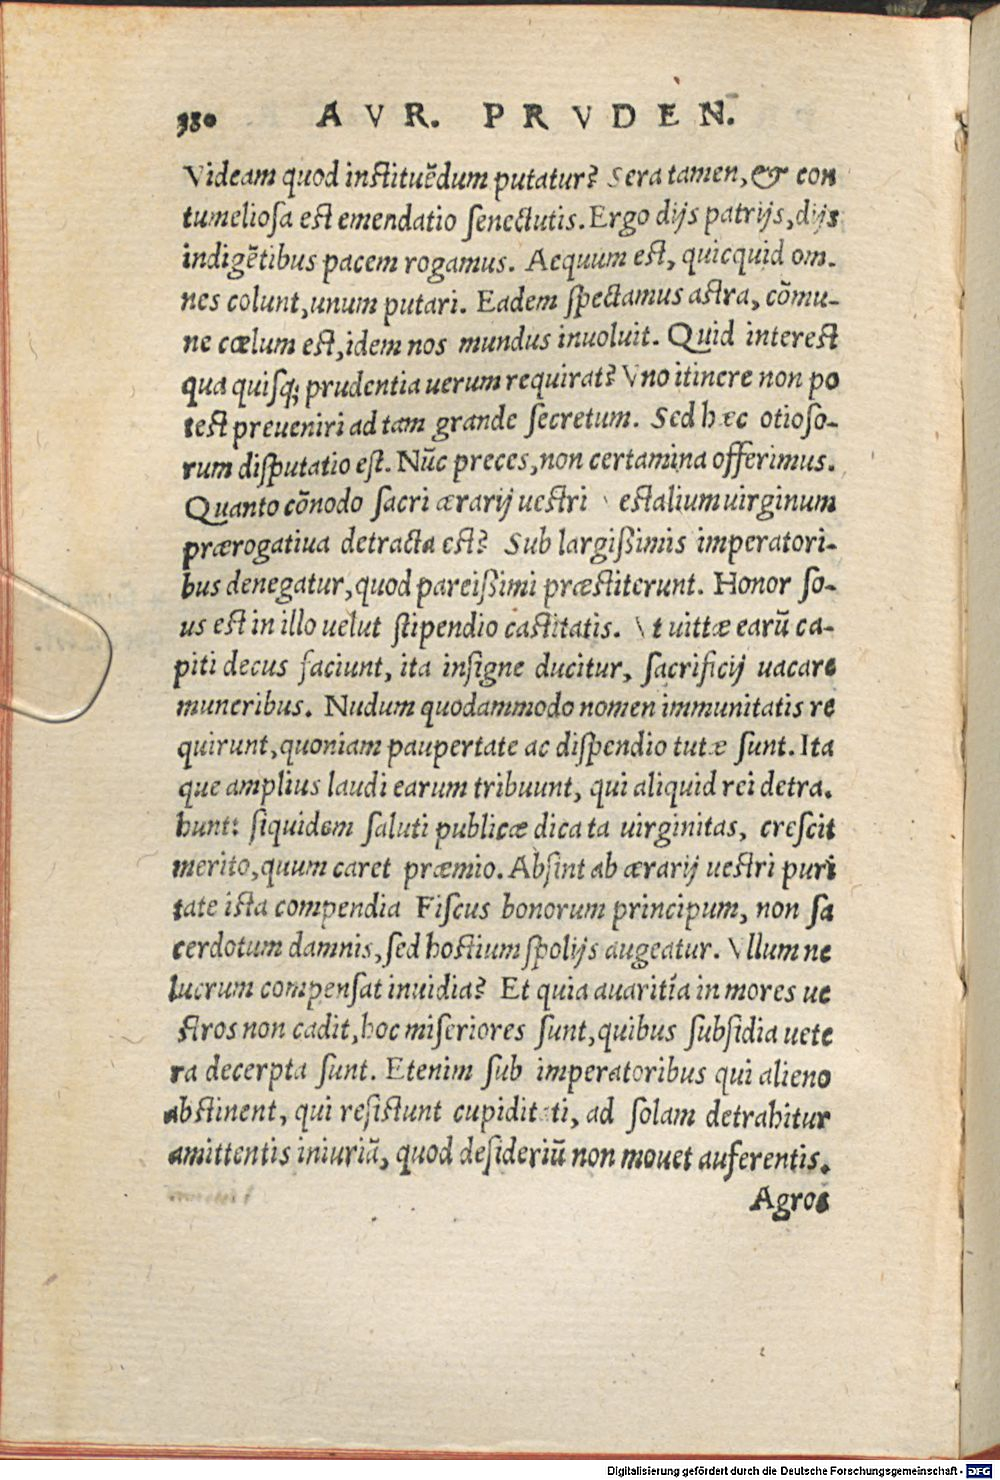 380 AVR. PRVDEN.
Videam quod instituēdum putatur? Sera tamen, & con
tumeliosa est emendatio senectutis. Ergo dijs patrijs, dijs
indigētibus pacem rogamus. Aequum est, quicquid om-
nes colunt, unum putari. Eadem spectamus astra, cōmu-
ne cœlum est, idem nos mundus inuoluit. Quid interest
qua quisq; prudentia uerum requirat? Vno itinere non po
test preueniri ad tam grande secretum. Sed hæc otioso-
rum disputatio est. Nūc preces, non certamina offerimus.
Quanto cōnodo sacri ærarij uestri estalium uirginum
prærogatiua detracta est? Sub largissimis imperatori-
bus denegatur, quod pareissimi præstiterunt. Honor so-
us est in illo uelut stipendio castitatis. Vt uittæ earū ca-
piti decus faciunt, ita insigne ducitur, sacrificij uacare
muneribus. Nudum quodammodo nomen immunitatis re
quirunt, quoniam paupertate ac dispendio tutæ sunt. Ita
que amplius laudi earum tribuunt, qui aliquid rei detra-
hunt: siquidem saluti publicæ dicata uirginitas, crescit
merito, quum caret præmio. Absint ab ærarij uestri puri
tate ista compendia Fiscus bonorum principum, non sa
cerdotum damnis, sed hostium spolijs augeatur. Vllum ne
lucrum compensat inuidia? Et quia auaritia in mores ue
stros non cadit, hoc miseriores sunt, quibus subsidia uete
ra decerpta sunt. Etenim sub imperatoribus qui alieno
abstinent, qui resistunt cupiditati, ad solam detrahitur
amittentis iniuriā, quod desideriū non mouet auferentis.
Agros
Digitalisierung gefördert durch die Deutsche Forschungsgemeinschaft - DFG